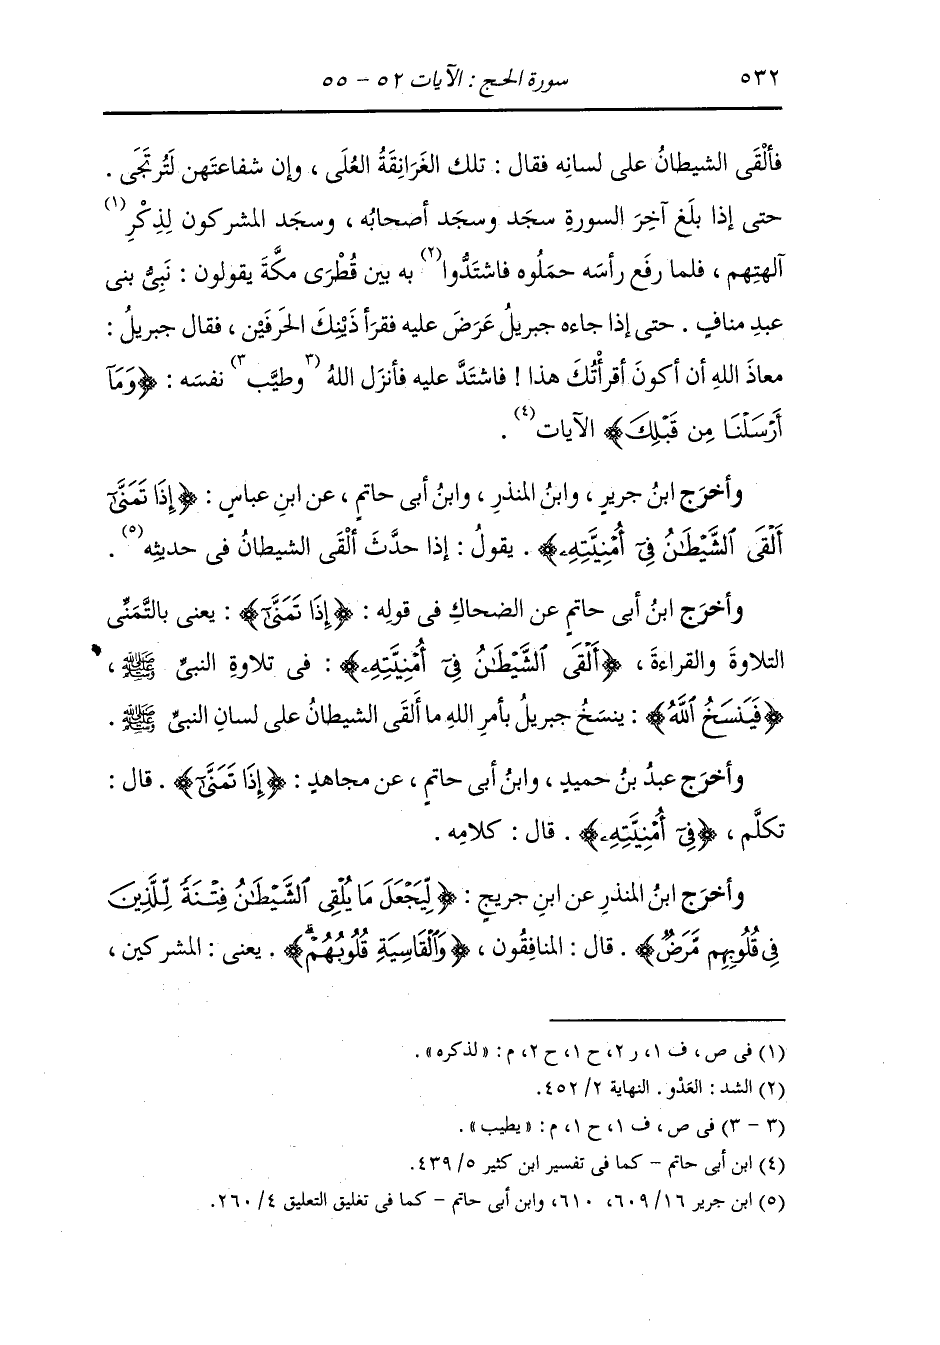 ٥٣٢ سورة الحج : الآيات ٥٢ - ٥٥
فألْقَى الشيطانُ على لسانِه فقال : تلك الغَرَانِقَةُ العُلَى ، وإن شفاعتَهن لَتُرتَجَى .
حتى إذا بلَغ آخِرَ السورةِ سجَد وسجَد أصحابُه ، وسجَد المشركون لِذِكْرِ(١)
آلهتِهم ، فلما رفَع رأسَه حمَلُوه فاشتَدُّوا(٢) به بين قُطْرَى مكَّةَ يقولون : نَبِىُّ بنى
عبدِ منافٍ . حتى إذا جاءه جبريلُ عَرَضَ عليه فقرَأ ذَيْنِكَ الحَرفَيْن ، فقال جبريلُ :
معاذَ اللهِ أن أكونَ أقرأْتُكَ هذا ! فاشتَدَّ عليه فأنزَل اللهُ (٣وطيَّب٣) نفسَه : ﴿وَمَآ
أَرْسَلْنَا مِن قَبْلِكَ﴾ الآيات(٤) .
وأخرَج ابنُ جريرٍ ، وابنُ المنذرِ ، وابنُ أبى حاتمٍ ، عن ابنِ عباسٍ : ﴿إِذَا تَمَنَّىٰٓ
أَلْقَى ٱلشَّيْطَٰنُ فِىٓ أُمْنِيَّتِهِۦ﴾ . يقولُ : إذا حدَّثَ ألْقَى الشيطانُ فى حديثِه(٥) .
وأخرَج ابنُ أبى حاتمٍ عن الضحاكِ فى قولِه : ﴿إِذَا تَمَنَّىٰٓ﴾ : يعنى بالتَّمَنِّى
التلاوةَ والقراءةَ ، ﴿أَلْقَى ٱلشَّيْطَٰنُ فِىٓ أُمْنِيَّتِهِۦ﴾ : فى تلاوةِ النبىِّ ﷺ ،
﴿فَيَنسَخُ ٱللَّهُ﴾ : ينسَخُ جبريلُ بأمرِ اللهِ ما أَلقَى الشيطانُ على لسانِ النبىِّ ﷺ .
وأخرَج عبدُ بنُ حميدٍ ، وابنُ أبى حاتمٍ ، عن مجاهدٍ : ﴿إِذَا تَمَنَّىٰٓ﴾ . قال :
تكلَّم ، ﴿فِىٓ أُمْنِيَّتِهِۦ﴾ . قال : كلامِه .
وأخرَج ابنُ المنذرِ عن ابنِ جريجٍ : ﴿لِّيَجْعَلَ مَا يُلْقِى ٱلشَّيْطَٰنُ فِتْنَةً لِّلَّذِينَ
فِى قُلُوبِهِم مَّرَضٌ﴾ . قال : المنافِقُون ، ﴿وَٱلْقَاسِيَةِ قُلُوبُهُمْۗ﴾ . يعنى : المشركين ،
(١) فى ص ، ف ١، ر ٢، ح ١، ح ٢، م : «لذكره» .
(٢) الشد : العَدْو . النهاية ٢/ ٤٥٢.
(٣ - ٣) فى ص ، ف ١، ح ١، م : «يطيب» .
(٤) ابن أبى حاتم - كما فى تفسير ابن كثير ٥/ ٤٣٩.
(٥) ابن جرير ١٦/ ٦٠٩، ٦١٠، وابن أبى حاتم - كما فى تغليق التعليق ٤/ ٢٦٠.